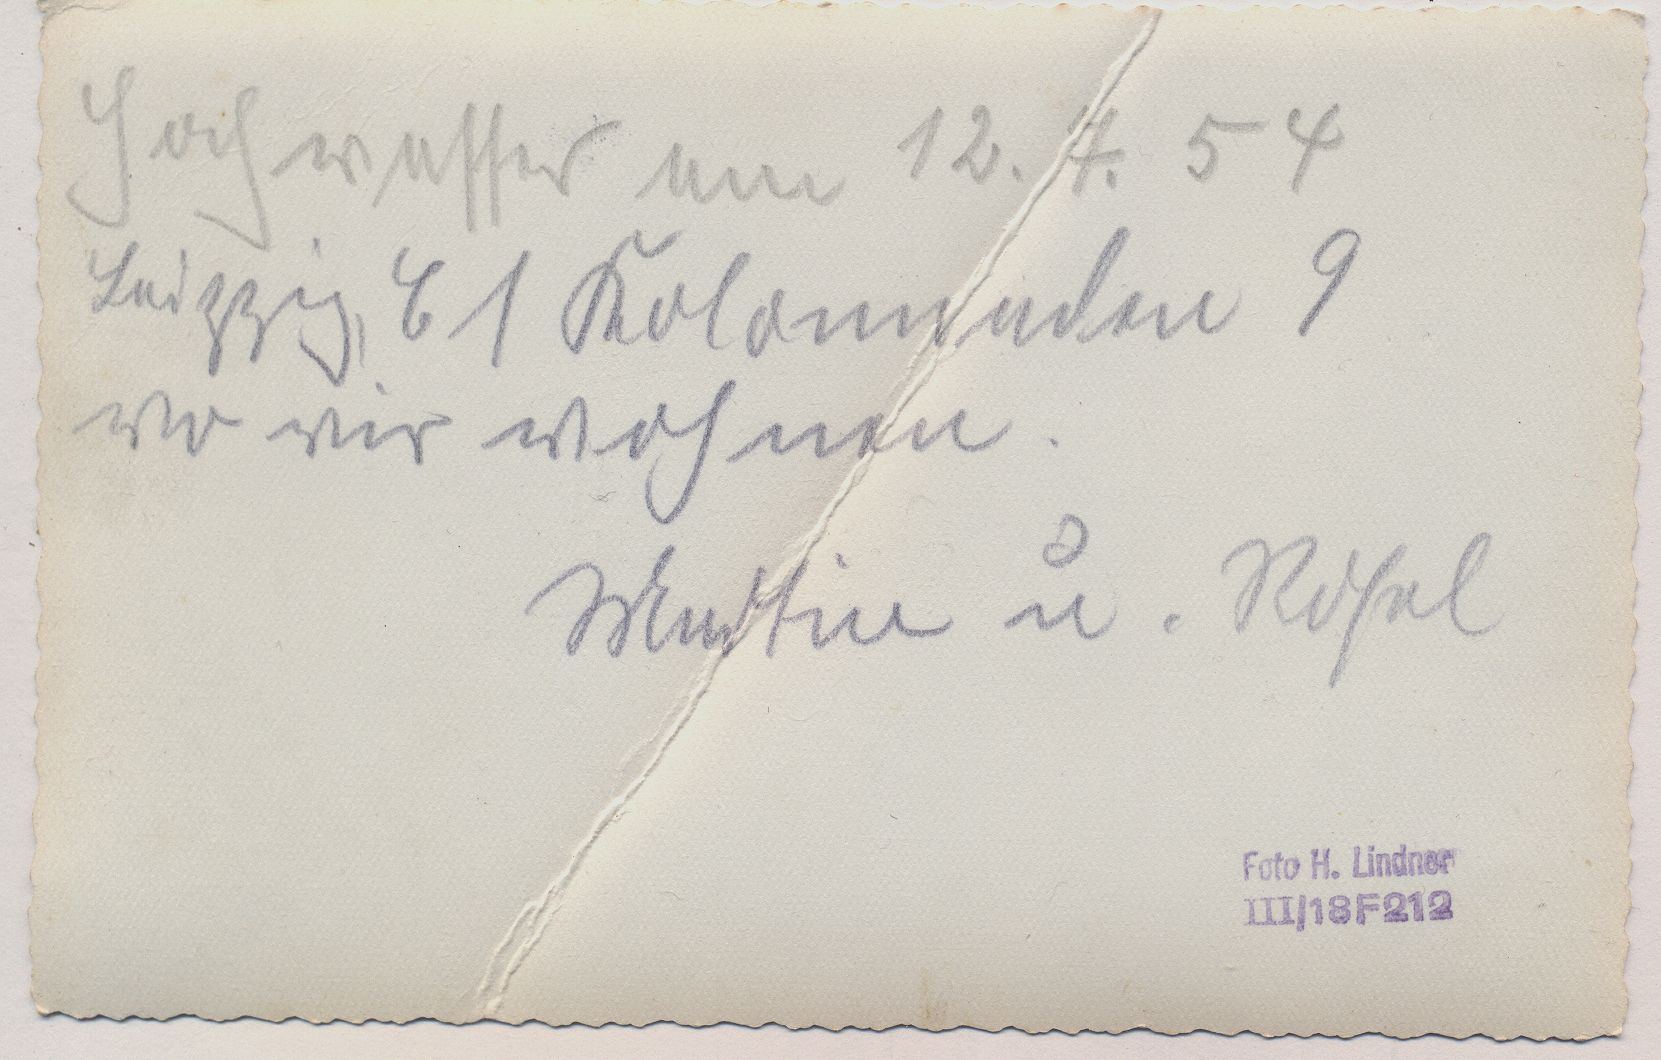 Hochwasser am 12. 7. 54
Leipzig, C 1 Kolonnaden 9
wo wir wohnen.
Martin u. Rösel
Foto H. Lindner
III/18 F 212